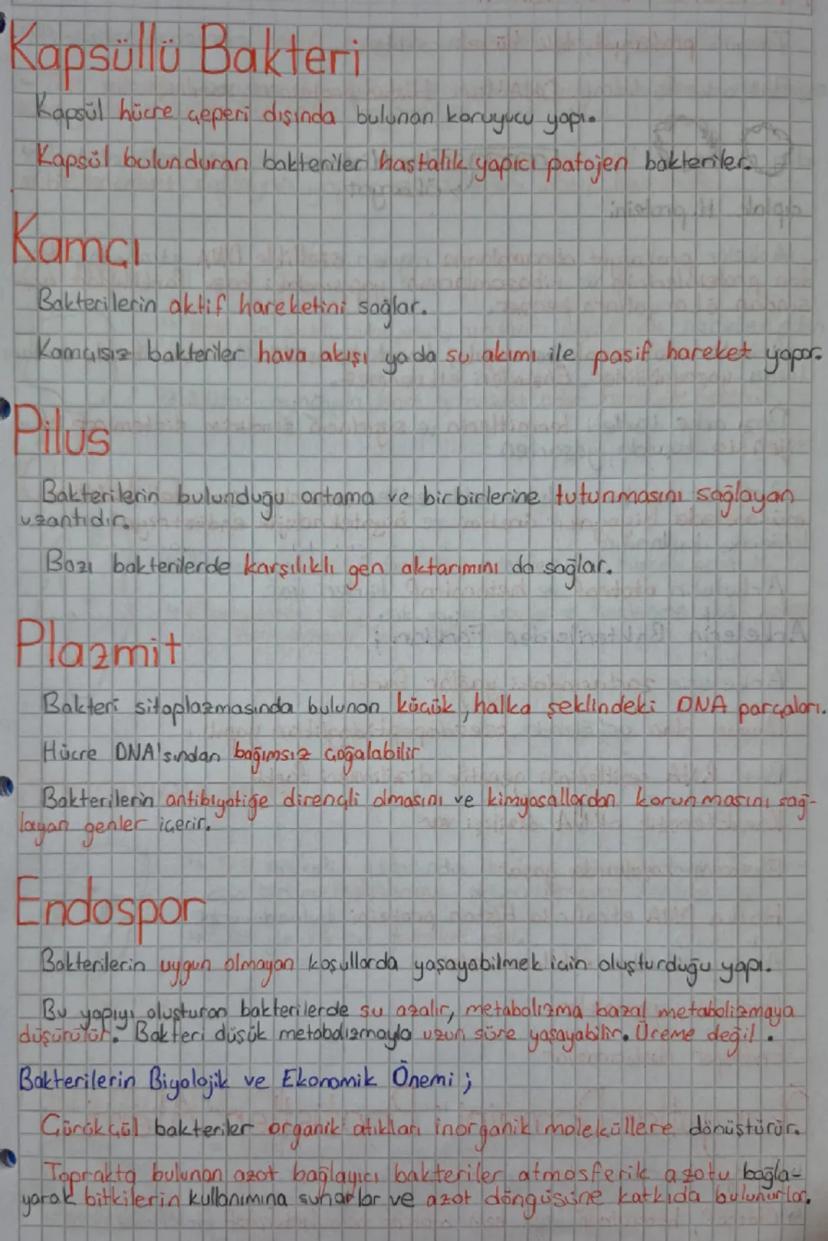 Kapsüllü Bakteri
Kapsül hücre çeperi dışında bulunan koruyucu yapı.
Kapsül bulunduran bakteriler hastalık yapıcı patojen bakteriler.
Kamçı
Bakterilerin aktif hareketini sağlar.
Kamçısız bakteriler hava akışı yada su akımı ile pasif hareket yapar.
Pilus
Bakterilerin bulunduğu ortama ve birbirlerine tutunmasını sağlayan
uzantıdır.
Bazı bakterilerde karşılıklı gen aktarımını da sağlar.
Plazmit
Bakteri sitoplazmasında bulunan küçük, halka şeklindeki DNA parçaları.
Hücre DNA'sından bağımsız çoğalabilir
Bakterilerin antibiyotiğe dirençli olmasını ve kimyasallardan korunmasını sağ-
layan genler içerir.
Endospor
Bakterilerin uygun olmayan koşullarda yaşayabilmek için oluşturduğu yapı.
Bu yapıyı oluşturan bakterilerde su azalır, metabolizma bazal metabolizmaya
düşürülür. Bakteri düşük metabolizmayla uzun süre yaşayabilir. Üreme değil.
Bakterilerin Biyolojik ve Ekonomik Önemi ;
Çürükçül bakteriler organik atıkları inorganik moleküllere dönüştürür.
Toprakta bulunan azot bağlayıcı bakteriler atmosferik azotu bağla-
yarak bitkilerin kullanımına sunarlar ve azot döngüsüne katkıda bulunurlar.